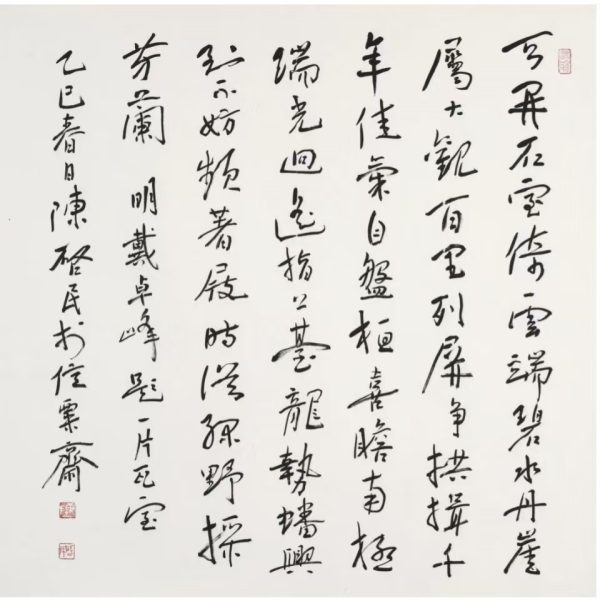 天開石室倚雲端碧水丹崖
屬大觀百里列屏爭拱揖千
年佳氣自盤桓喜瞻南極
瑞光迴遙指三臺龍勢蟠興
到不妨頻著屐時從綠野採
芳蘭 明戴卓峰題一片瓦室
乙巳春日陳啓民於信粟齋